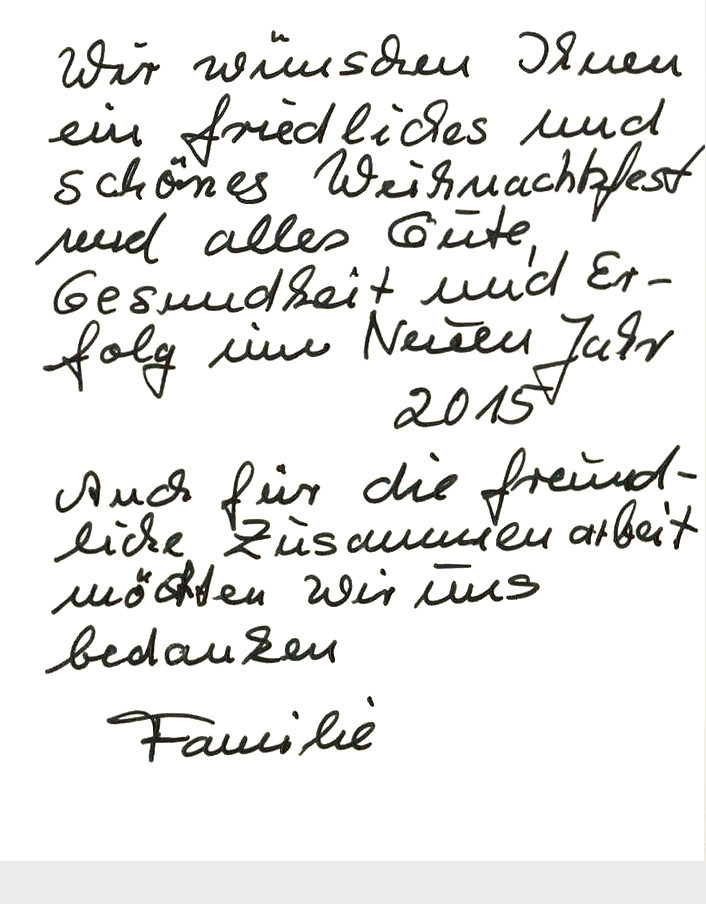 Wir wünschen Ihnen
ein friedliches und
schönes Weihnachtsfest
und alles Gute,
Gesundheit und Er-
folg im Neuen Jahr
2015
Auch für die freund-
liche Zusammenarbeit
möchten wir uns
bedanken
Familie